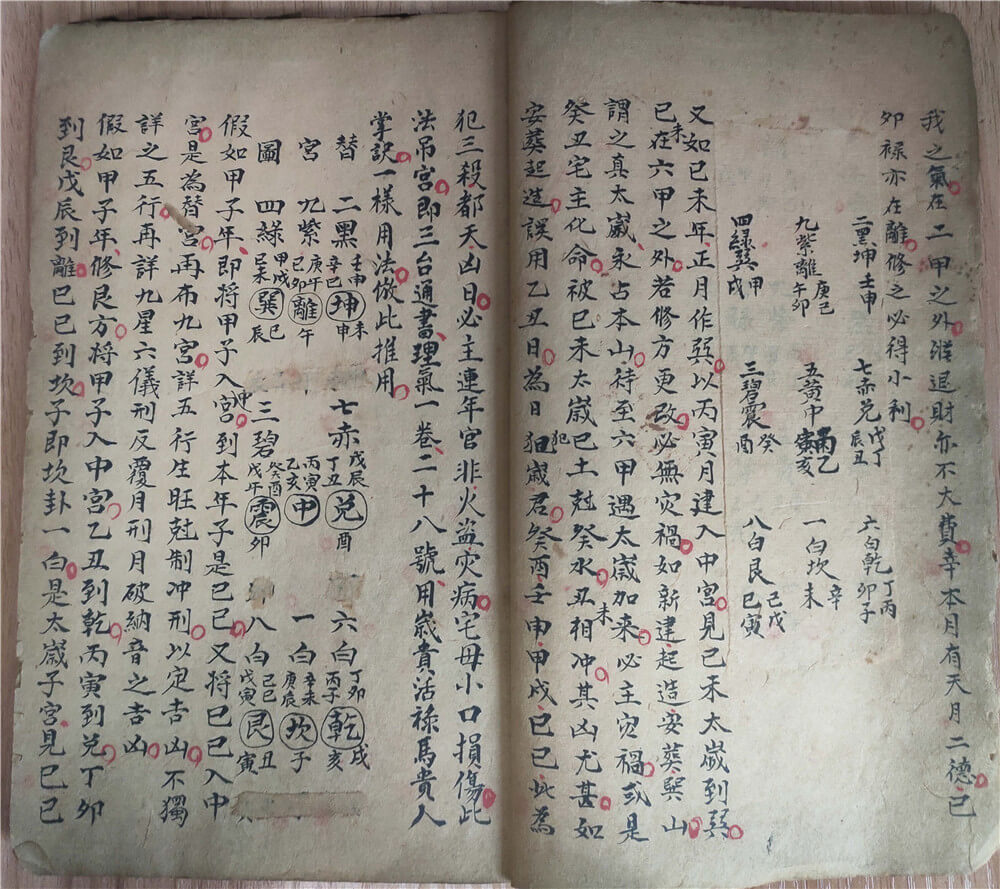 我之氣在二甲之外雖退財亦不大費幸本月有天月二德己
卯祿亦在離修之必得小利
二黑坤壬申 七赤兌戊丁辰丑 六白乾丁丙卯子
九紫離庚己午卯 五黃中丙乙寅亥 一白坎辛未
四綠巽甲戌 三碧震癸酉 八白艮己戊巳寅
又如己未年正月作巽以丙寅月建入中宮見己未太歲到巽
已在六甲之外若修方更改必無灾禍如新建起造安葵巽山
謂之真太歲永占本山待至六甲遇太歲加来必主灾禍或是
癸丑宅主化命被己未太歲己土尅癸水丑未相冲其凶尤甚如
安葵起造誤用乙丑日為日犯歲君癸酉壬申甲戌己巳此為
犯三殺都天凶日必主連年官非火盗灾病宅母小口損傷此
法吊宮即三台通書理氣一卷二十八號用歲貴活祿馬貴人
掌訣一樣用法倣此推用
替 二黑壬申辛巳坤未申 七赤戊辰丁丑兌酉 六白丁卯丙子乾戌亥
宮 九紫庚午己卯離午 丙寅乙亥中 一白辛未庚辰坎子
圖 四綠甲戌己未巽巳辰 三碧癸酉戊午震卯 八白己巳戊寅艮丑寅
假如甲子年即將甲子入中宮到本年子是己巳又將己巳入中
宮是為替宮再布九宮詳五行生旺尅制冲刑以定吉凶不獨
詳之五行再詳九星六儀刑反覆月刑月破納音之吉凶
假如甲子年修艮方將甲子入中宮乙丑到乾丙寅到兌丁卯
到艮戊辰到離己巳到坎子即坎卦一白是太歲子宮見己巳